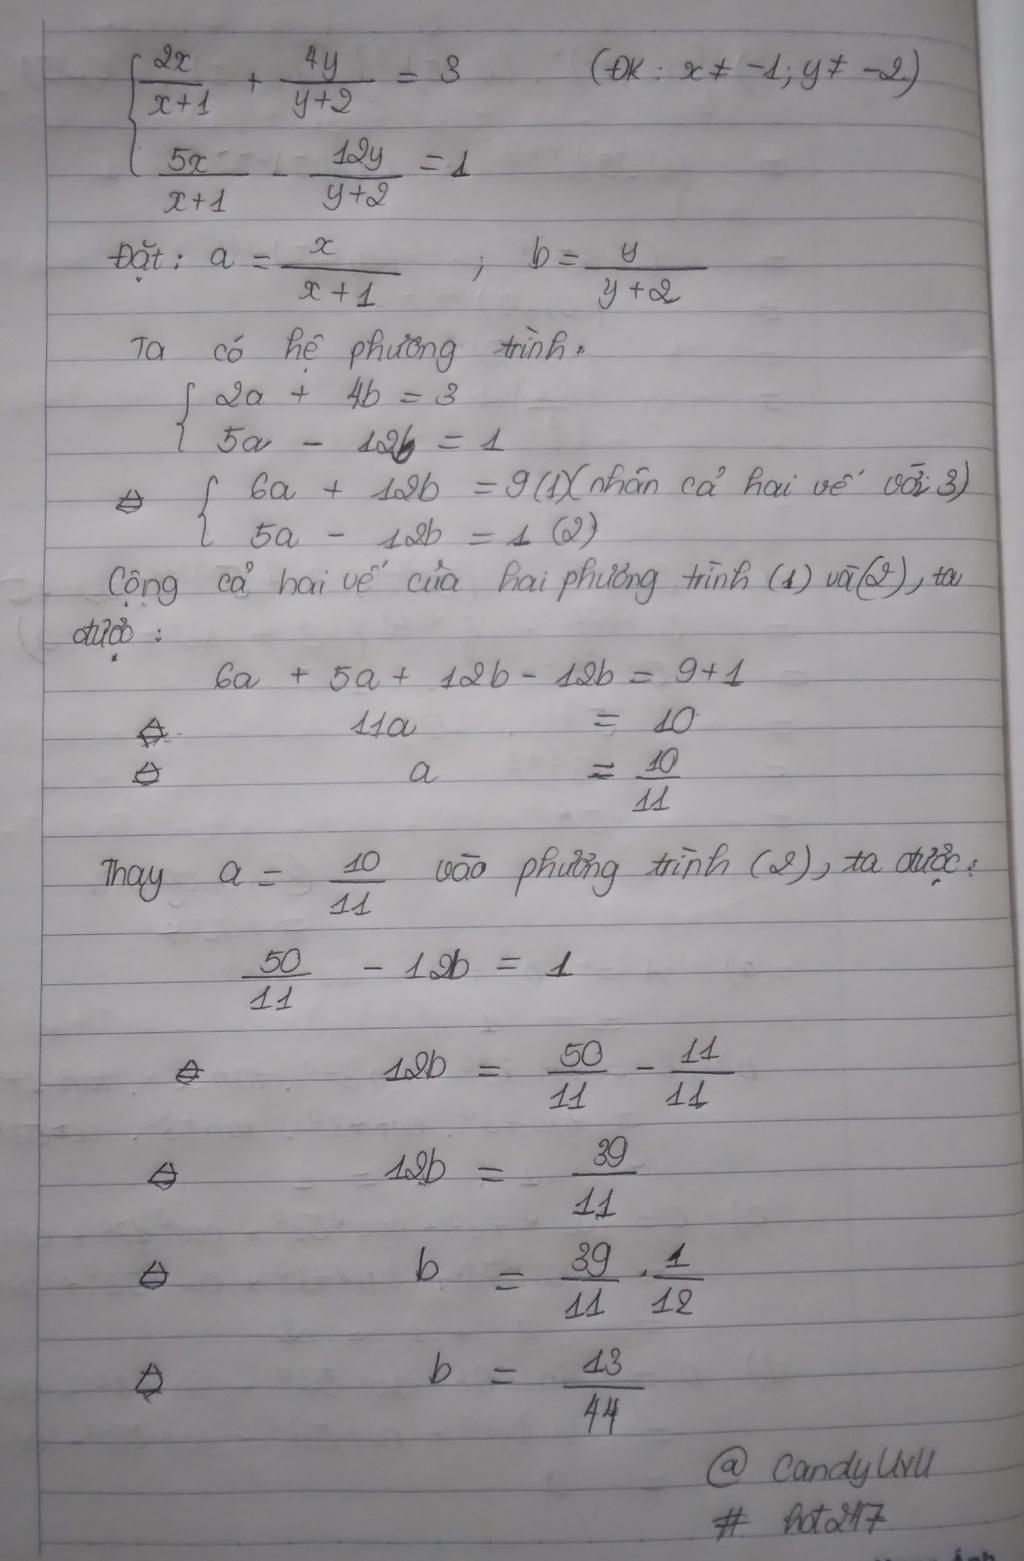 { 2x/(x+1) + 4y/(y+2) = 3 (ĐK: x ≠ -1; y ≠ -2)
5x/(x+1) - 12y/(y+2) = 1
Đặt: a = x/(x+1) ; b = y/(y+2)
Ta có hệ phương trình.
{ 2a + 4b = 3
5a - 12b = 1
⇔ { 6a + 12b = 9 (1) (nhân cả hai vế với 3)
5a - 12b = 1 (2)
Cộng cả hai vế của hai phương trình (1) và (2), ta
được:
6a + 5a + 12b - 12b = 9+1
⇔ 11a = 10
⇔ a = 10/11
Thay a = 10/11 vào phương trình (2), ta được:
50/11 - 12b = 1
⇔ 12b = 50/11 - 11/11
⇔ 12b = 39/11
⇔ b = 39/11 . 1/12
⇔ b = 13/44
@ CandyUvU
# hot247